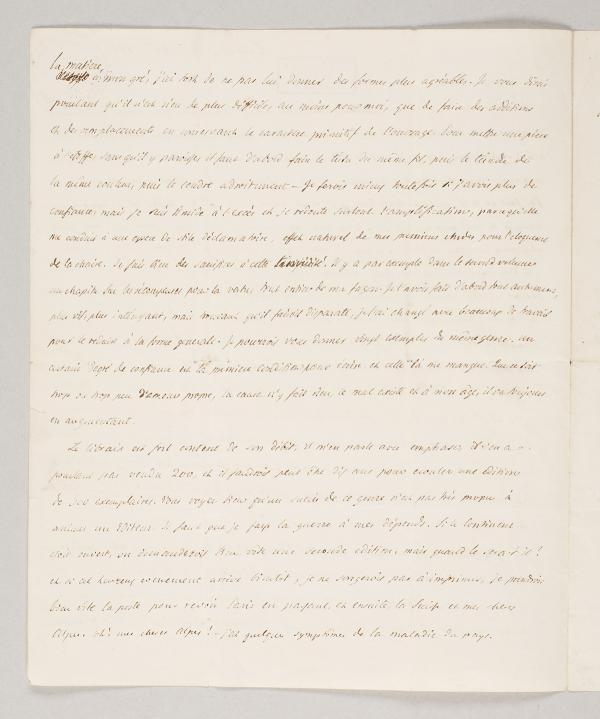 la matière
à mon gré, j'ai tort de ne pas lui donner des formes plus agréables. Je vous dirai
pourtant qu'il n'est rien de plus difficile, au moins pour moi, que de faire des additions
et des remplacements en conservant le caractère primitif de l'ouvrage. Pour mettre une pièce
à l'étoffe sans qu'il y paroisse, il faut d'abord faire le tissu du même fil, puis le teindre de
la même couleur, puis le coudre adroitement. Je ferois mieux toutefois si j'avois plus de
confiance, mais je suis timide à l'excès et je redoute surtout l'amplification, parce qu'elle
me conduit à une espèce de stile déclamatoire, effet naturel de mes premières études pour l'éloquence
de la chaire. Je fais bien des sacrifices à cette timidité. Il y a par exemple dans le second volume
un chapitre sur les récompenses pour la vertu tout entier de ma façon. Je l'avois fait d'abord tout autrement,
plus vif, plus intéressant, mais trouvant qu'il faisoit disparate, je l'ai changé avec beaucoup de travail
pour le réduire à la forme générale. Je pourrois vous donner vingt exemples du même genre. Un
certain degré de confiance est la première condition pour écrire et celle là me manque. Que ce soit
trop ou trop peu d'amour propre, la cause n'y fait rien, le mal existe et à mon âge, il va toujours
en augmentant.
Le libraire est fort content de son débit, il m'en parle avec emphase, il n'en a
pourtant pas vendu 200, et il faudroit peut être dix ans pour écouler une édition
de 500 exemplaires. Vous voyez bien qu'un succès de ce genre n'est pas très propre à
animer un Editeur. Il faut que je fasse la guerre à mes dépends. Si le continent
étoit ouvert, on demanderoit bien vite une seconde édition, mais quand le sera-t-il!
et si cet heureux évènement arrive bientôt, je ne songerois pas à imprimer, je prendrois
bien vite la poste pour revoir Paris en passant, et ensuite la Suisse et mes chères
Alpes. Oh! mes chères Alpes! - j'ai quelques symptômes de la maladie du pays.